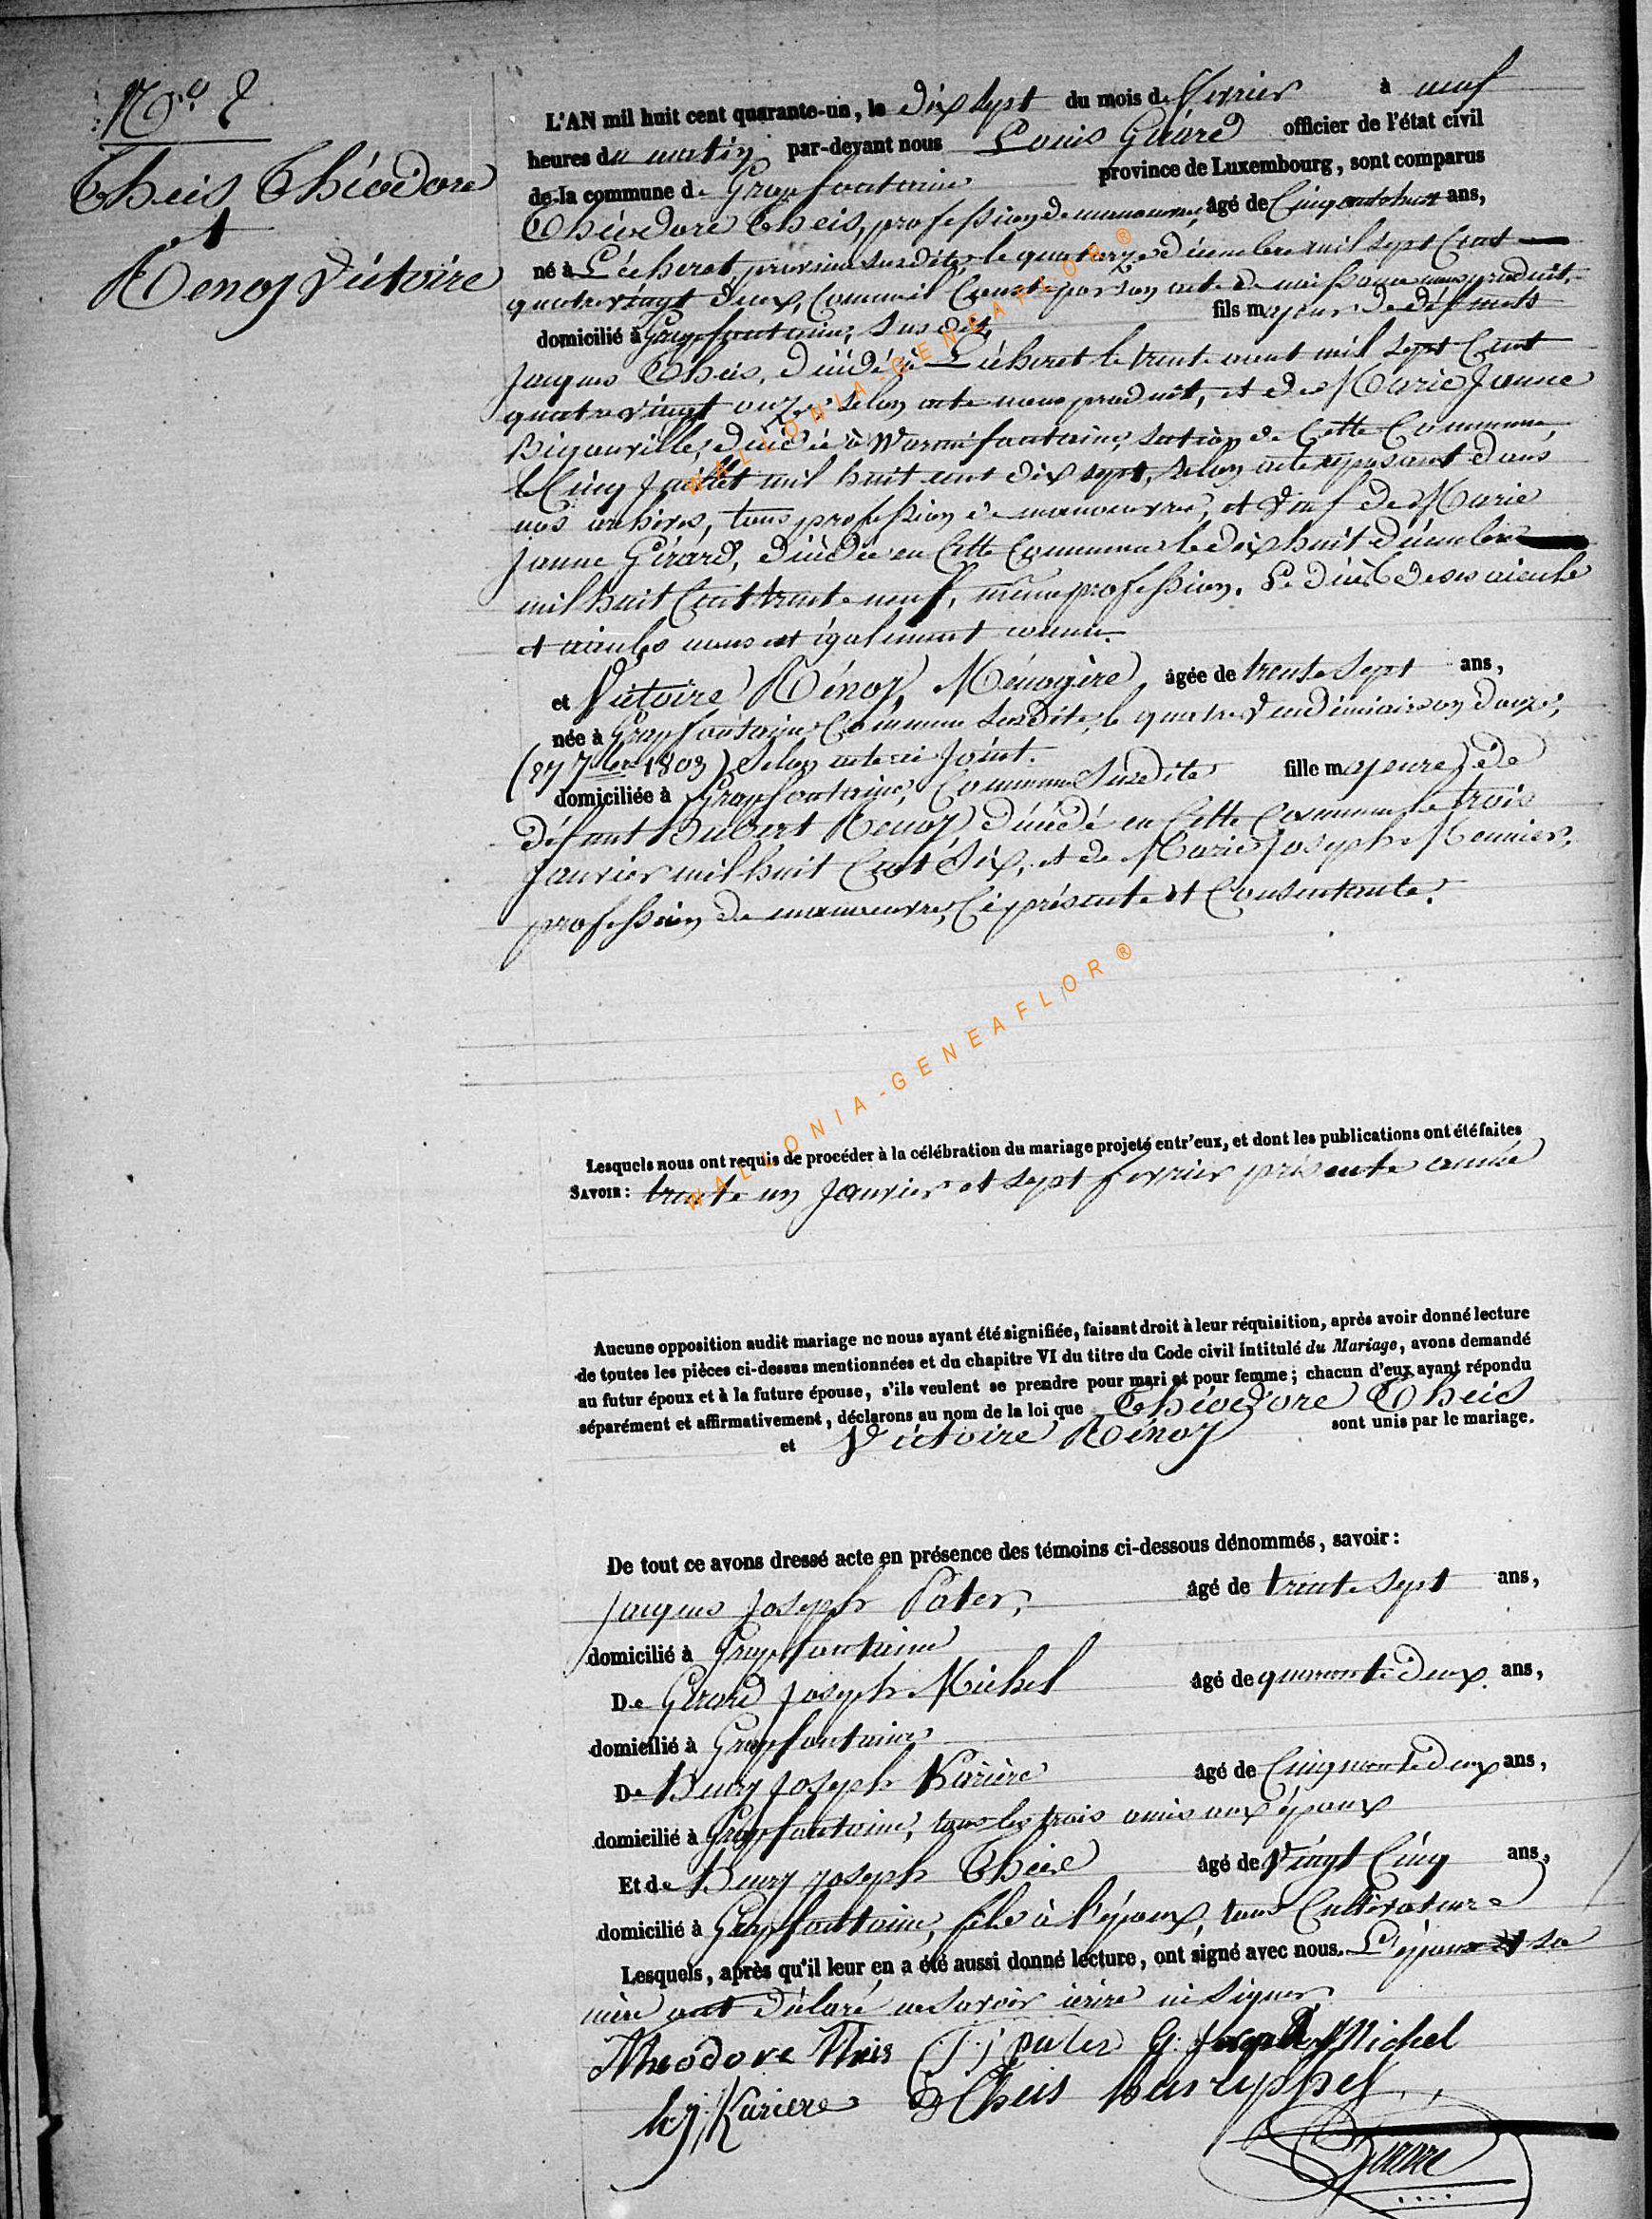 N.o 2
Theis Théodore
et
Renoy Victoire
L'AN mil huit cent quarante-un, le dix sept du mois de février à neuf
heures du matin par-devant nous Louis officier de l'état civil
de la commune de Grapfontaine province de Luxembourg, sont comparus
Théodore Theis, profession de manoeuvre, âgé de Cinquante huit ans,
né à Lécheret, province susdite, le quatorze décembre mil sept Cent
quatre vingt deux, Comme il Conste par son acte de naissance nous produit,
domicilié à Grapfontaine, susdit, fils majeur de défunts
Jacques Theis, décédé à Lécheret le trente aout mil sept Cent
quatre vingt onze selon acte nous produit, et de Marie Jeanne
Bigonville, décédée à Warmifontaine, section de Cette Commune,
le Cinq Juillet mil huit cent dix sept, selon acte reposant dans
nos archives, tous profession de manoeuvre, et Veuf de Marie
Jeanne Gérard, décédée en Cette Commune le dix huit décembre
mil huit Cent trente neuf, même profession. Le décès de ses aieuls
et aieules nous est également connu.
et Victoire Rénoy, Ménagère âgée de trente sept ans,
née à Grapfontaine Commune susdite, le quatre Vendémiaire an douze,
(27 7bre 1803) selon acte ci Joint.
domiciliée à Grapfontaine, Commune Susdite fille majeure de
défunt Hubert Renoy décédé en Cette Commune le trois
Janvier mil huit Cent Six, et de Marie Joseph Monnier,
profession de manoeuvre, Ci présente et Consentante.
Lesquels nous ont requis de procéder à la célébration du mariage projeté entr'eux, et dont les publications ont été faites
SAVOIR: trente un Janvier et sept février présente année
Aucune opposition audit mariage ne nous ayant été signifiée, faisant droit à leur réquisition, après avoir donné lecture
de toutes les pièces ci-dessus mentionnées et du chapitre VI du titre du Code civil intitulé du Mariage, avons demandé
au futur époux et à la future épouse, s'ils veulent se prendre pour mari et pour femme; chacun d'eux ayant répondu
séparément et affirmativement, déclarons au nom de la loi que Théodore Theis
et Victoire Rénoy sont unis par le mariage.
De tout ce avons dressé acte en présence des témoins ci-dessous dénommés, savoir:
Jacques Joseph Pater, âgé de trente sept ans,
domicilié à Grapfontaine
De Gérard Joseph Michel âgé de quarante deux ans,
domicilié à Grapfontaine
De Henry Joseph Karière âgé de Cinquante deux ans,
domicilié à Grapfontaine, tous les trois amis aux époux
Et de Henry Joseph Theis âgé de Vingt Cinq ans,
domicilié à Grapfontaine, fils à l'époux, tous Cultivateurs
Lesquels, après qu'il leur en a été aussi donné lecture, ont signé avec nous. L'épouse et sa
mère ont déclaré ne savoir écrire ni signer.
Théodore Theis J j pater G. Joseph Michel
h j Kariere Theis
WALLONIA-GENEAFLOR®
WALLONIA-GENEAFLOR®